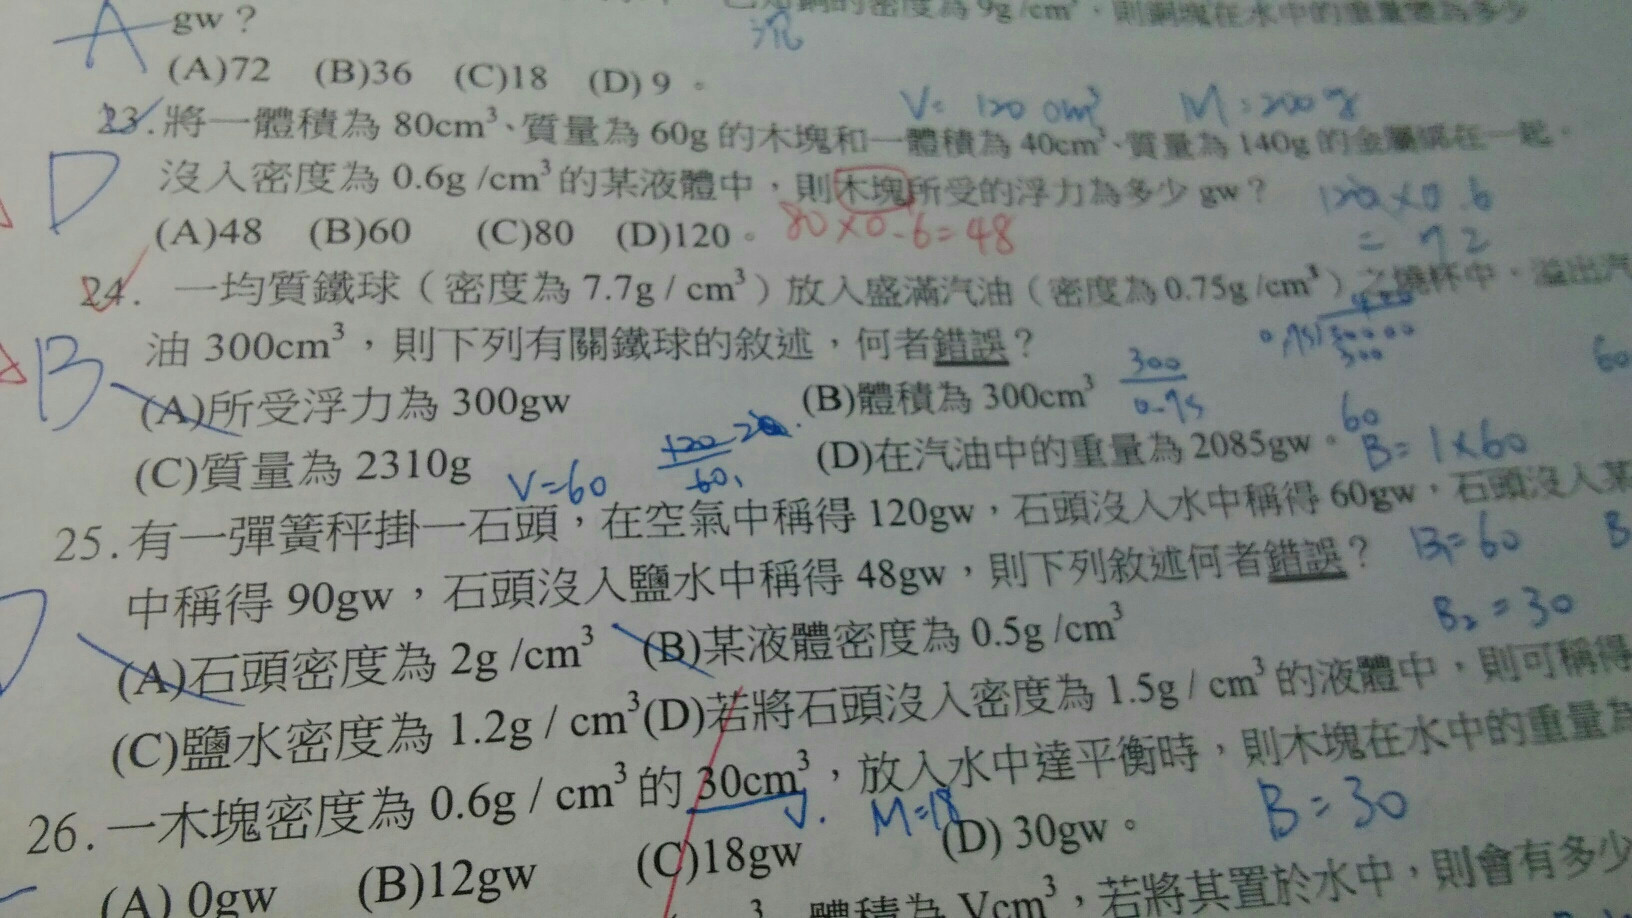 已知銅的密度為9g/cm³，則銅塊在水中的重量變為多少
A gw？ 沉
(A)72 (B)36 (C)18 (D) 9。
V= 120 cm³ M=200g
23.將一體積為 80cm³、質量為 60g 的木塊和一體積為 40cm³、質量為 140g 的金屬綁在一起，
D 沒入密度為 0.6g /cm³ 的某液體中，則木塊所受的浮力為多少 gw？ 120×0.6
(A)48 (B)60 (C)80 (D)120。 80×0.6=48 = 72
24. 一均質鐵球（密度為 7.7g / cm³）放入盛滿汽油（密度為 0.75g /cm³）之燒杯中，溢出汽
油 300cm³，則下列有關鐵球的敘述，何者錯誤？
B (A)所受浮力為 300gw (B)體積為 300cm³ 300/0.75
(C)質量為 2310g (D)在汽油中的重量為 2085gw。 B= 1×60
V=60
25.有一彈簧秤掛一石頭，在空氣中稱得 120gw，石頭沒入水中稱得 60gw，石頭沒入某
中稱得 90gw，石頭沒入鹽水中稱得 48gw，則下列敘述何者錯誤？ B₁=60
B₂=30
(A)石頭密度為 2g /cm³ (B)某液體密度為 0.5g /cm³
(C)鹽水密度為 1.2g / cm³ (D)若將石頭沒入密度為 1.5g / cm³ 的液體中，則可稱得
26.一木塊密度為 0.6g / cm³ 的 30cm³，放入水中達平衡時，則木塊在水中的重量為
V. M=18 B=30
(A) 0gw (B)12gw (C)18gw (D) 30gw。
體積為 Vcm³，若將其置於水中，則會有多少